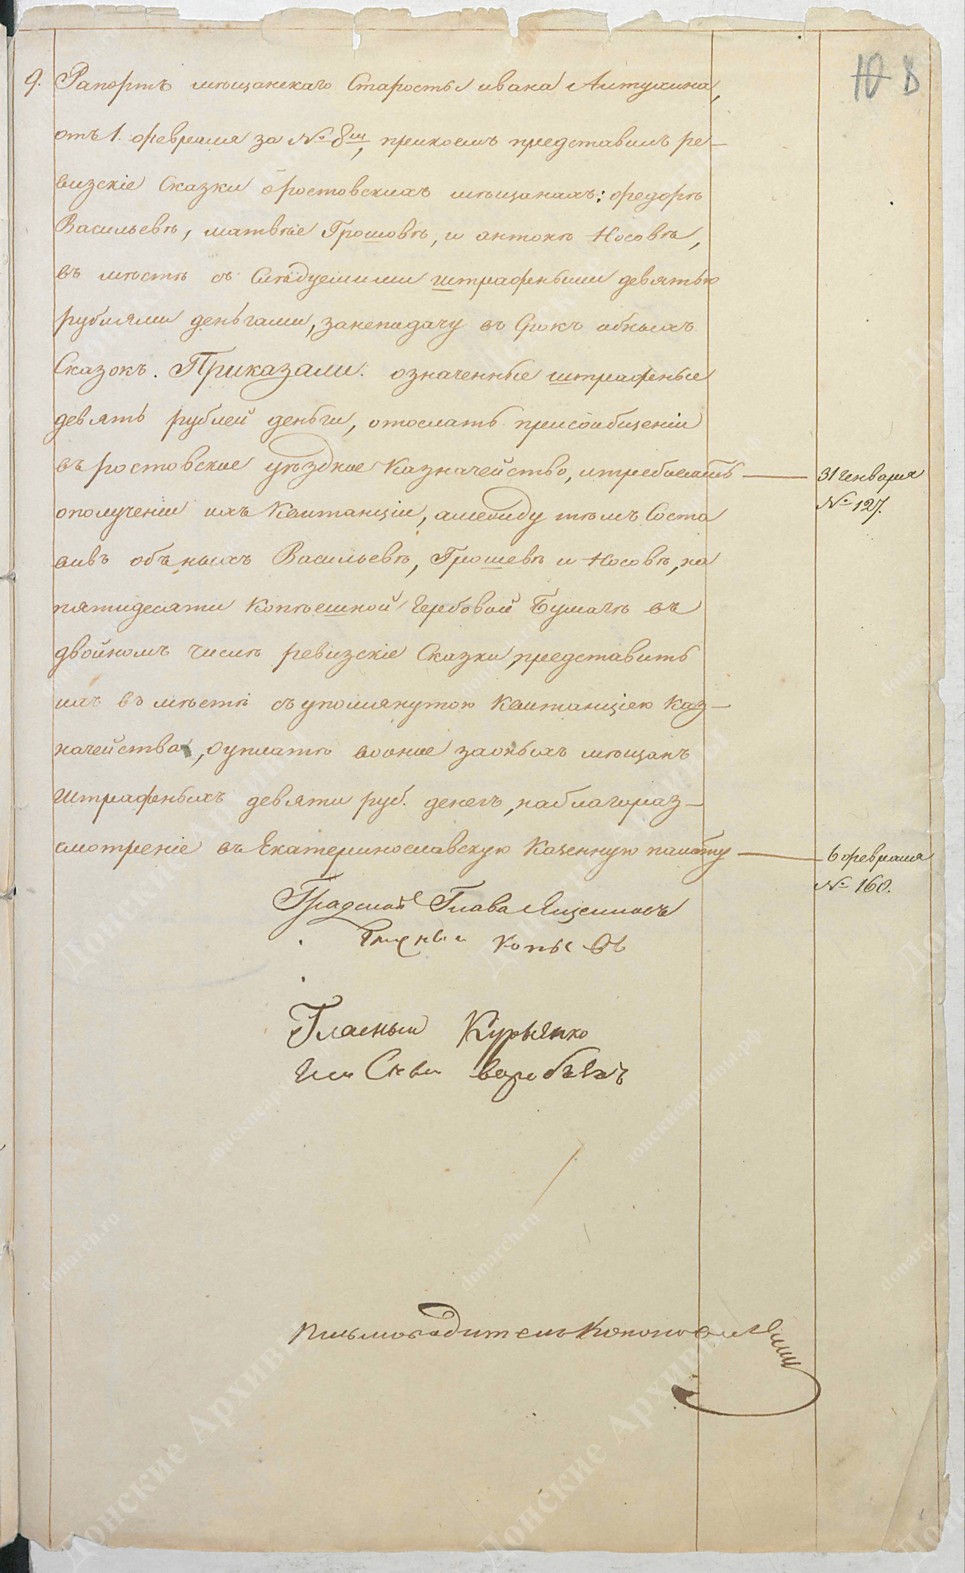 10 8
9. Рапортъ мѣщанскаго Старосты ивана Алтухина,
отъ 1. февраля за № 8м, прикоемъ представилъ ре-
визскіе Сказки оростовскихъ мѣщанахъ: федорѣ
Васильевѣ, матвѣе Грошовѣ, и антонѣ Носовѣ,
въ мѣстѣ съ Слѣдуемыми штрафными девятью
рублями деньгами, занеподачу въ Срокъ обныхъ
Сказокъ. Приказали: означенные штрафные
девять рублей деньги, отослать присообщеніи
въ ростовское уѣздное Казначейство, итребовать
ополученіи ихъ Квитанціи, амежду тѣмъ Соста
вивъ объ ныхъ Васильевѣ, Грошевѣ и Носовѣ, на
пятидесяти Копѣешной Гербовой Бумагѣ въ
двойномъ числѣ ревизскіе Сказки, представить
ихъ въ мѣстѣ съупомянутою Квитанціею Каз-
начейства, оуплатѣ воное заоныхъ мѣщанъ
Штрафныхъ девяти руб. денегъ, наблагораз-
смотреніе въ Екатеринославскую Казенную палату
31 Генваря
№ 127.
6 февраля
№ 160.
Градской Глава Ященковъ
Гласный Курьянко
воробьевъ
письмоводитель Кононов
Донские Архивы
donarch.ru